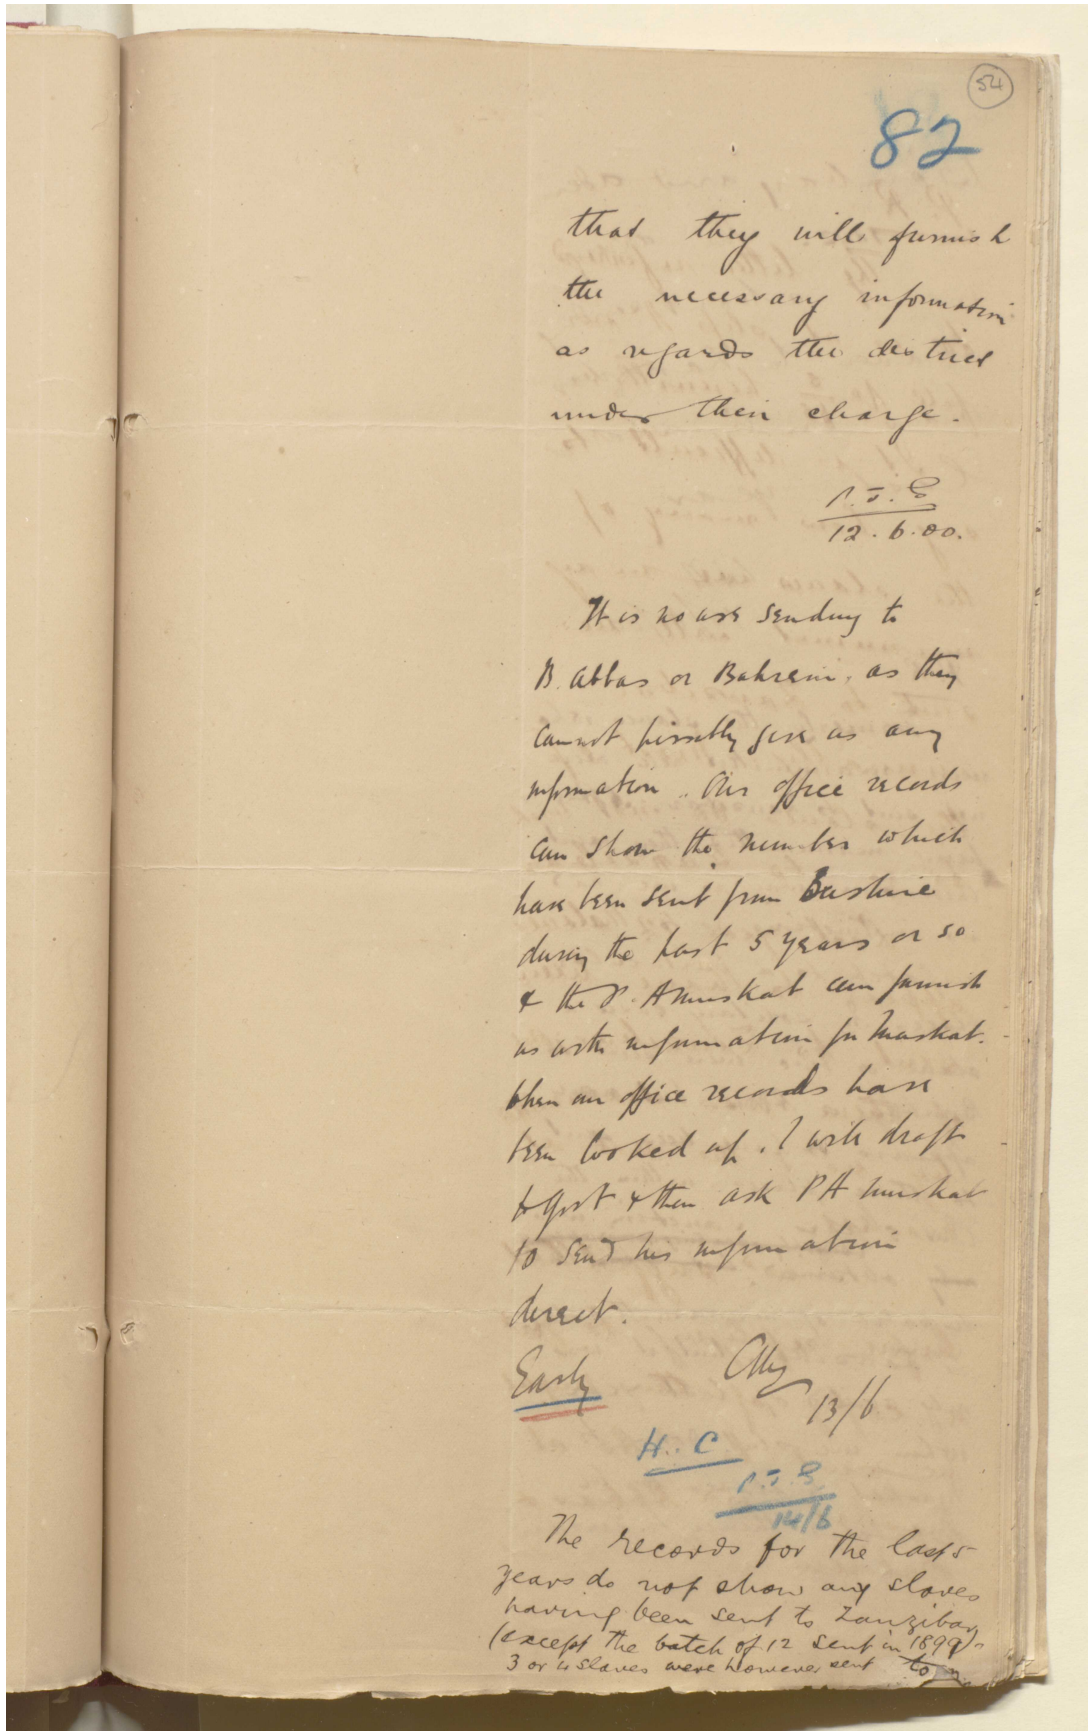 54
82
that they will furnish
the necessary information
as regards the district
under their charge.
P. J. G
12. 6. 00.
It is no use sending to
B. Abbas or Bahrein, as they
cannot possibly give us any
information. Our office records
can show the number which
have been sent from Bushire
during the past 5 years or so
& the P. A Muskat can furnish
us with information for Muskat.
When our office records have
been looked up, I will draft
to Govt & then ask PA Muskat
to send his information
direct.
Early
13/6
H. C
P. J. G
14/6
The records for the last 5
years do not show any slaves
having been sent to Zanzibar
(except the batch of 12 sent in 1899).
3 or 4 slaves were however sent to